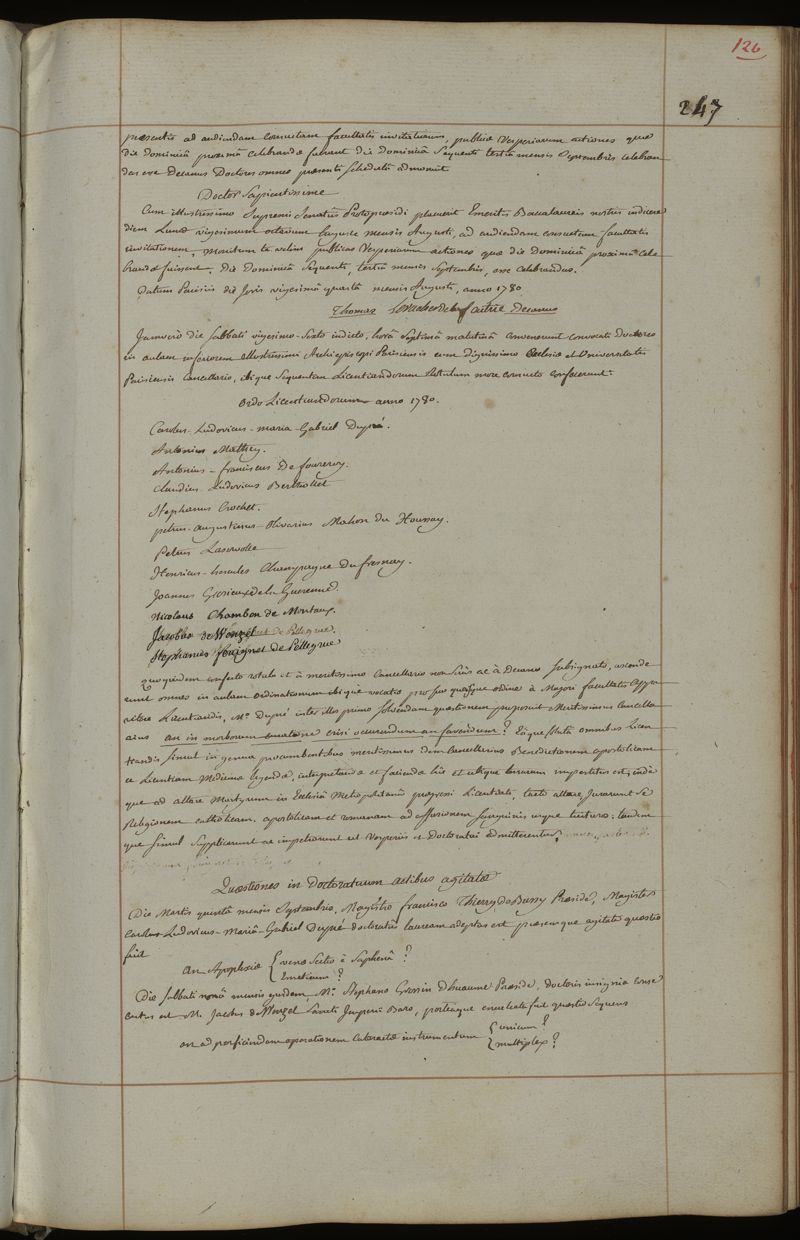 126
247
præsentis ad audiendam consuetam facultatis invitationem, publicæ Vesperiarum actiones quæ
die Dominicâ proximâ celebrandæ fuerant die Dominicâ Sequenti tertiâ mensis Septembris celebran
das esse Decanus Doctores omnes præsenti schedulâ admonuit
Doctor Sapientissime
Cum illustrissimo Supremi Senatus Protopræsidi placuerit Emeritis Baccalaureis nostris indicere
diem Lunæ vigesimum octavum hujusce mensis Augusti, ad audiendam consuetam facultatis
invitationem, monitum te velim publicas Vesperiarum actiones quæ die Dominicâ proximâ cele
brandæ fuissent, die Dominicâ Sequenti, tertiâ mensis Septembris, esse celebrandas.
Datum Parisiis die Jovis vigesimâ quartâ mensis Augusti, anno 1780
Thomas Levacher de la feutrie Decanus
Januero die Sabbati vigesimo-Sexto indicto, horâ Septimâ matutinâ convenerunt convocati doctores
in aulam inferiorem illustrissimi Archiepiscopi Parisiensis cum dignissimo Ecclesiæ et Universitatis
Parisiensis Cancellario, ibique Sequentem Licentiandorum Rotulum more consueto confecerunt.
Ordo Licentiandorum anno 1780.
Carolus-Ludovicus-maria-Gabriel Dupré.
Antonius Mathey.
Antonius-franciscus De fourcroy.
Claudius-Ludovicus Berthollet
Stephanus Crochet.
petrus-augustinus-Olivarius Mahon du Houssay.
Petrus Laservolle
Henricus-hercules Champagne Dufresnay.
Joannes Grosieux de la Guerenne.
Nicolaus Chambon de Montaux.
Jacobus de Wenzel
Stephanus fouignet de Pellegrue
quo quidem confecto rotulo et à meritissimo Cancellario non Secus ac à Decano Subsignato, ascende
runt omnes in aulam ordinationum ibique vocatis pro suo quisque ordine à Majori facultatis Appa
ritore Licentiandis, Mo. Dupré inter illos primo Solvendam quæstionem proposuit Meritissimus Cancella
rius an in morborum curatione crisi occurrendum an favendum? Eâque Solutâ omnibus Licen
tiandis Simul in genua procumbentibus meritissimus idem Cancellarius Benedictionem apostolicam
et Licentiam Medicinæ legendæ, interpretandæ et faciendæ hîc et ubique terrarum impertitus est, inde
que ad altare Martyrum in Ecclesiâ Metropolitanâ progressi Licentiati, tacto altare, Jurarunt Se
Religionem catholicam, apostolicam et romanam ad effusionem Sanguinis usque tuituros; tandem
que Simul Supplicarunt ac impetrarunt ut Vesperiis et Doctoratui admitterentur.
Quæstiones in doctoratuum actibus agitatæ
Die Martis quintâ mensis Septembris, Magistro francisco Thierry de Bussy Præside, Magister
Carolus-Ludovicus-Mariâ-Gabriel Dupré doctoratûs lauream adeptus est præsenque agitata quæstio
fuit
an Apoplexiæ { venæ Sectio è Saphenâ ?
Emeticum ?
Die Sabbati nonâ mensis ejusdem Mo. Stephano Grossin Duhaume Præside, doctoris insignia conse
cutus est M. Jacobus de Wenzel Sancti Imperii Baro, pertenque enucleata fuit quæstio Sequens
an ad perficiendam operationem Cataractæ instrumentum { unicum?
multiplex?